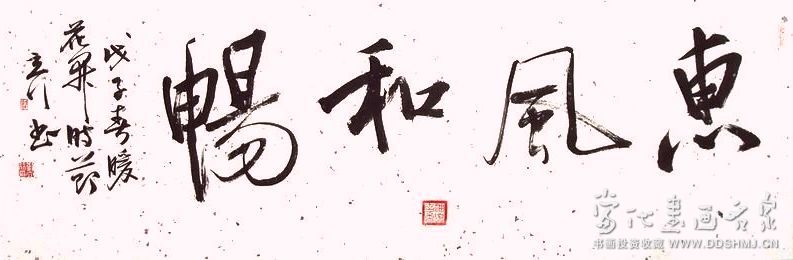 惠風和暢
戊子春暖
花開時節
立行書
當代書画名家
书画投资收藏 WWW.DDSHMJ.CN